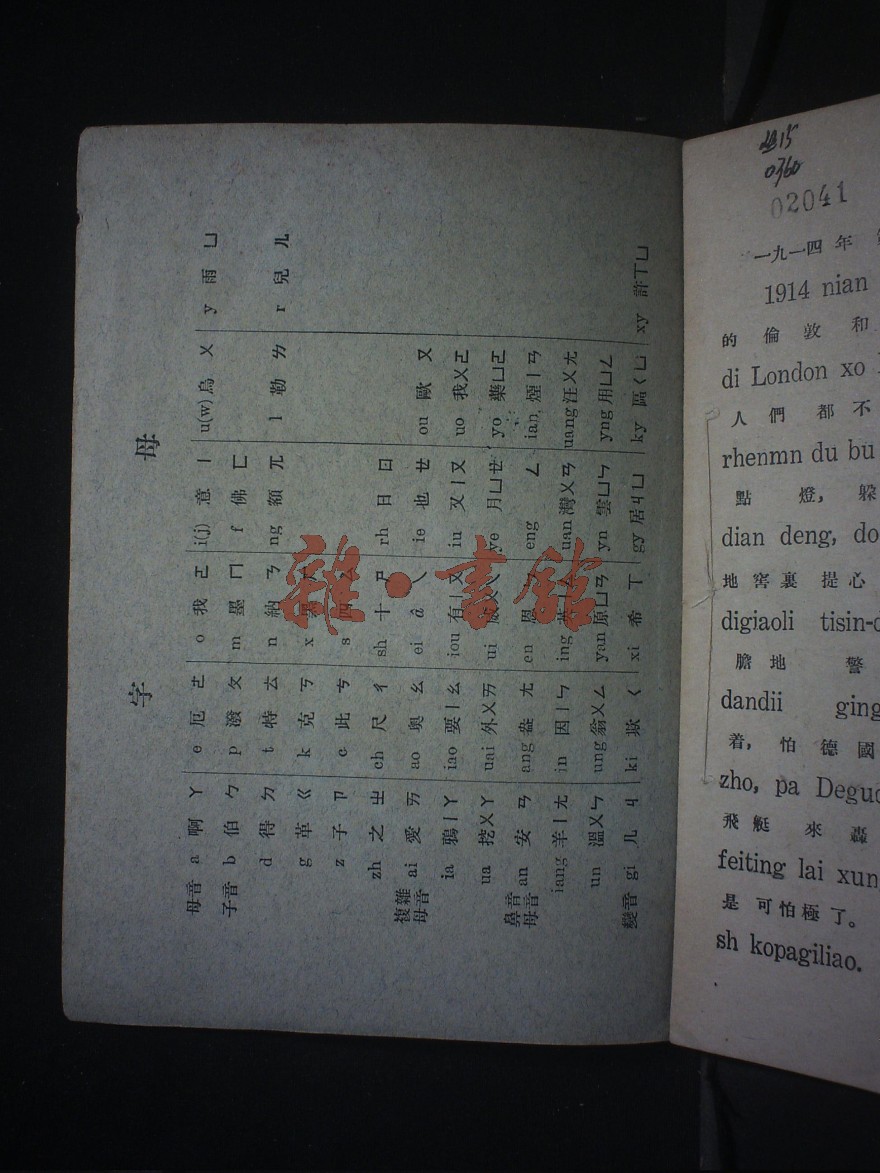 字母
母音 a 啊 ㄚ e 厄 ㄜ o 我 ㄛ i(j) 意 ㄧ u(w) 烏 ㄨ y 雨 ㄩ
子音 b 伯 ㄅ p 潑 ㄆ m 墨 ㄇ f 佛 ㄈ
d 得 ㄉ t 特 ㄊ n 納 ㄋ ng 額 ㄫ l 勒 ㄌ r 兒 ㄦ
g 革 ㄍ k 克 ㄎ x 黑 ㄏ
z 子 ㄗ c 此 ㄘ s 四 ㄙ
zh 之 ㄓ ch 尺 ㄔ sh 十 ㄕ rh 日 ㄖ
複雜母音 ai 愛 ㄞ ao 奧 ㄠ ei â ㄟ ie 也 ㄝ ou 歐 ㄡ
ia 鴉 ㄧㄚ iao 要 ㄧㄠ iou 有 ㄧㄡ iu 又 ㄧㄡ uo 我 ㄨㄛ
ua 挖 ㄨㄚ uai 外 ㄨㄞ ui ㄨㄟ ye 月 ㄩㄝ yo 藥 ㄩㄛ
鼻音母音 an 安 ㄢ ang 盎 ㄤ en 恩 ㄣ eng ㄥ ian 煙 ㄧㄢ
iang 羊 ㄧㄤ in 因 ㄧㄣ ing 英 ㄧㄥ uan 灣 ㄨㄢ uang 汪 ㄨㄤ
un 溫 ㄨㄣ ung 翁 ㄨㄥ yan 原 ㄩㄢ yn 雲 ㄩㄣ yng 用 ㄩㄥ
變音 gi 几 ㄐ ki 欺 ㄑ xi 希 ㄒ gy 居 ㄐㄩ ky 區 ㄑㄩ xy 許 ㄒㄩ
雜·書館
02041
一九一四年
1914 nian
的 倫敦 和
di London xo
人們 都 不
rhenmn du bu
點 燈, 躲
dian deng, do
地窖裏 提心
digiaoli tisin-
膽地 警
dandii ging
着, 怕 德國
zho, pa Deguo
飛艇 來 轟
feiting lai xun
是 可怕極了。
sh kopagiliao.